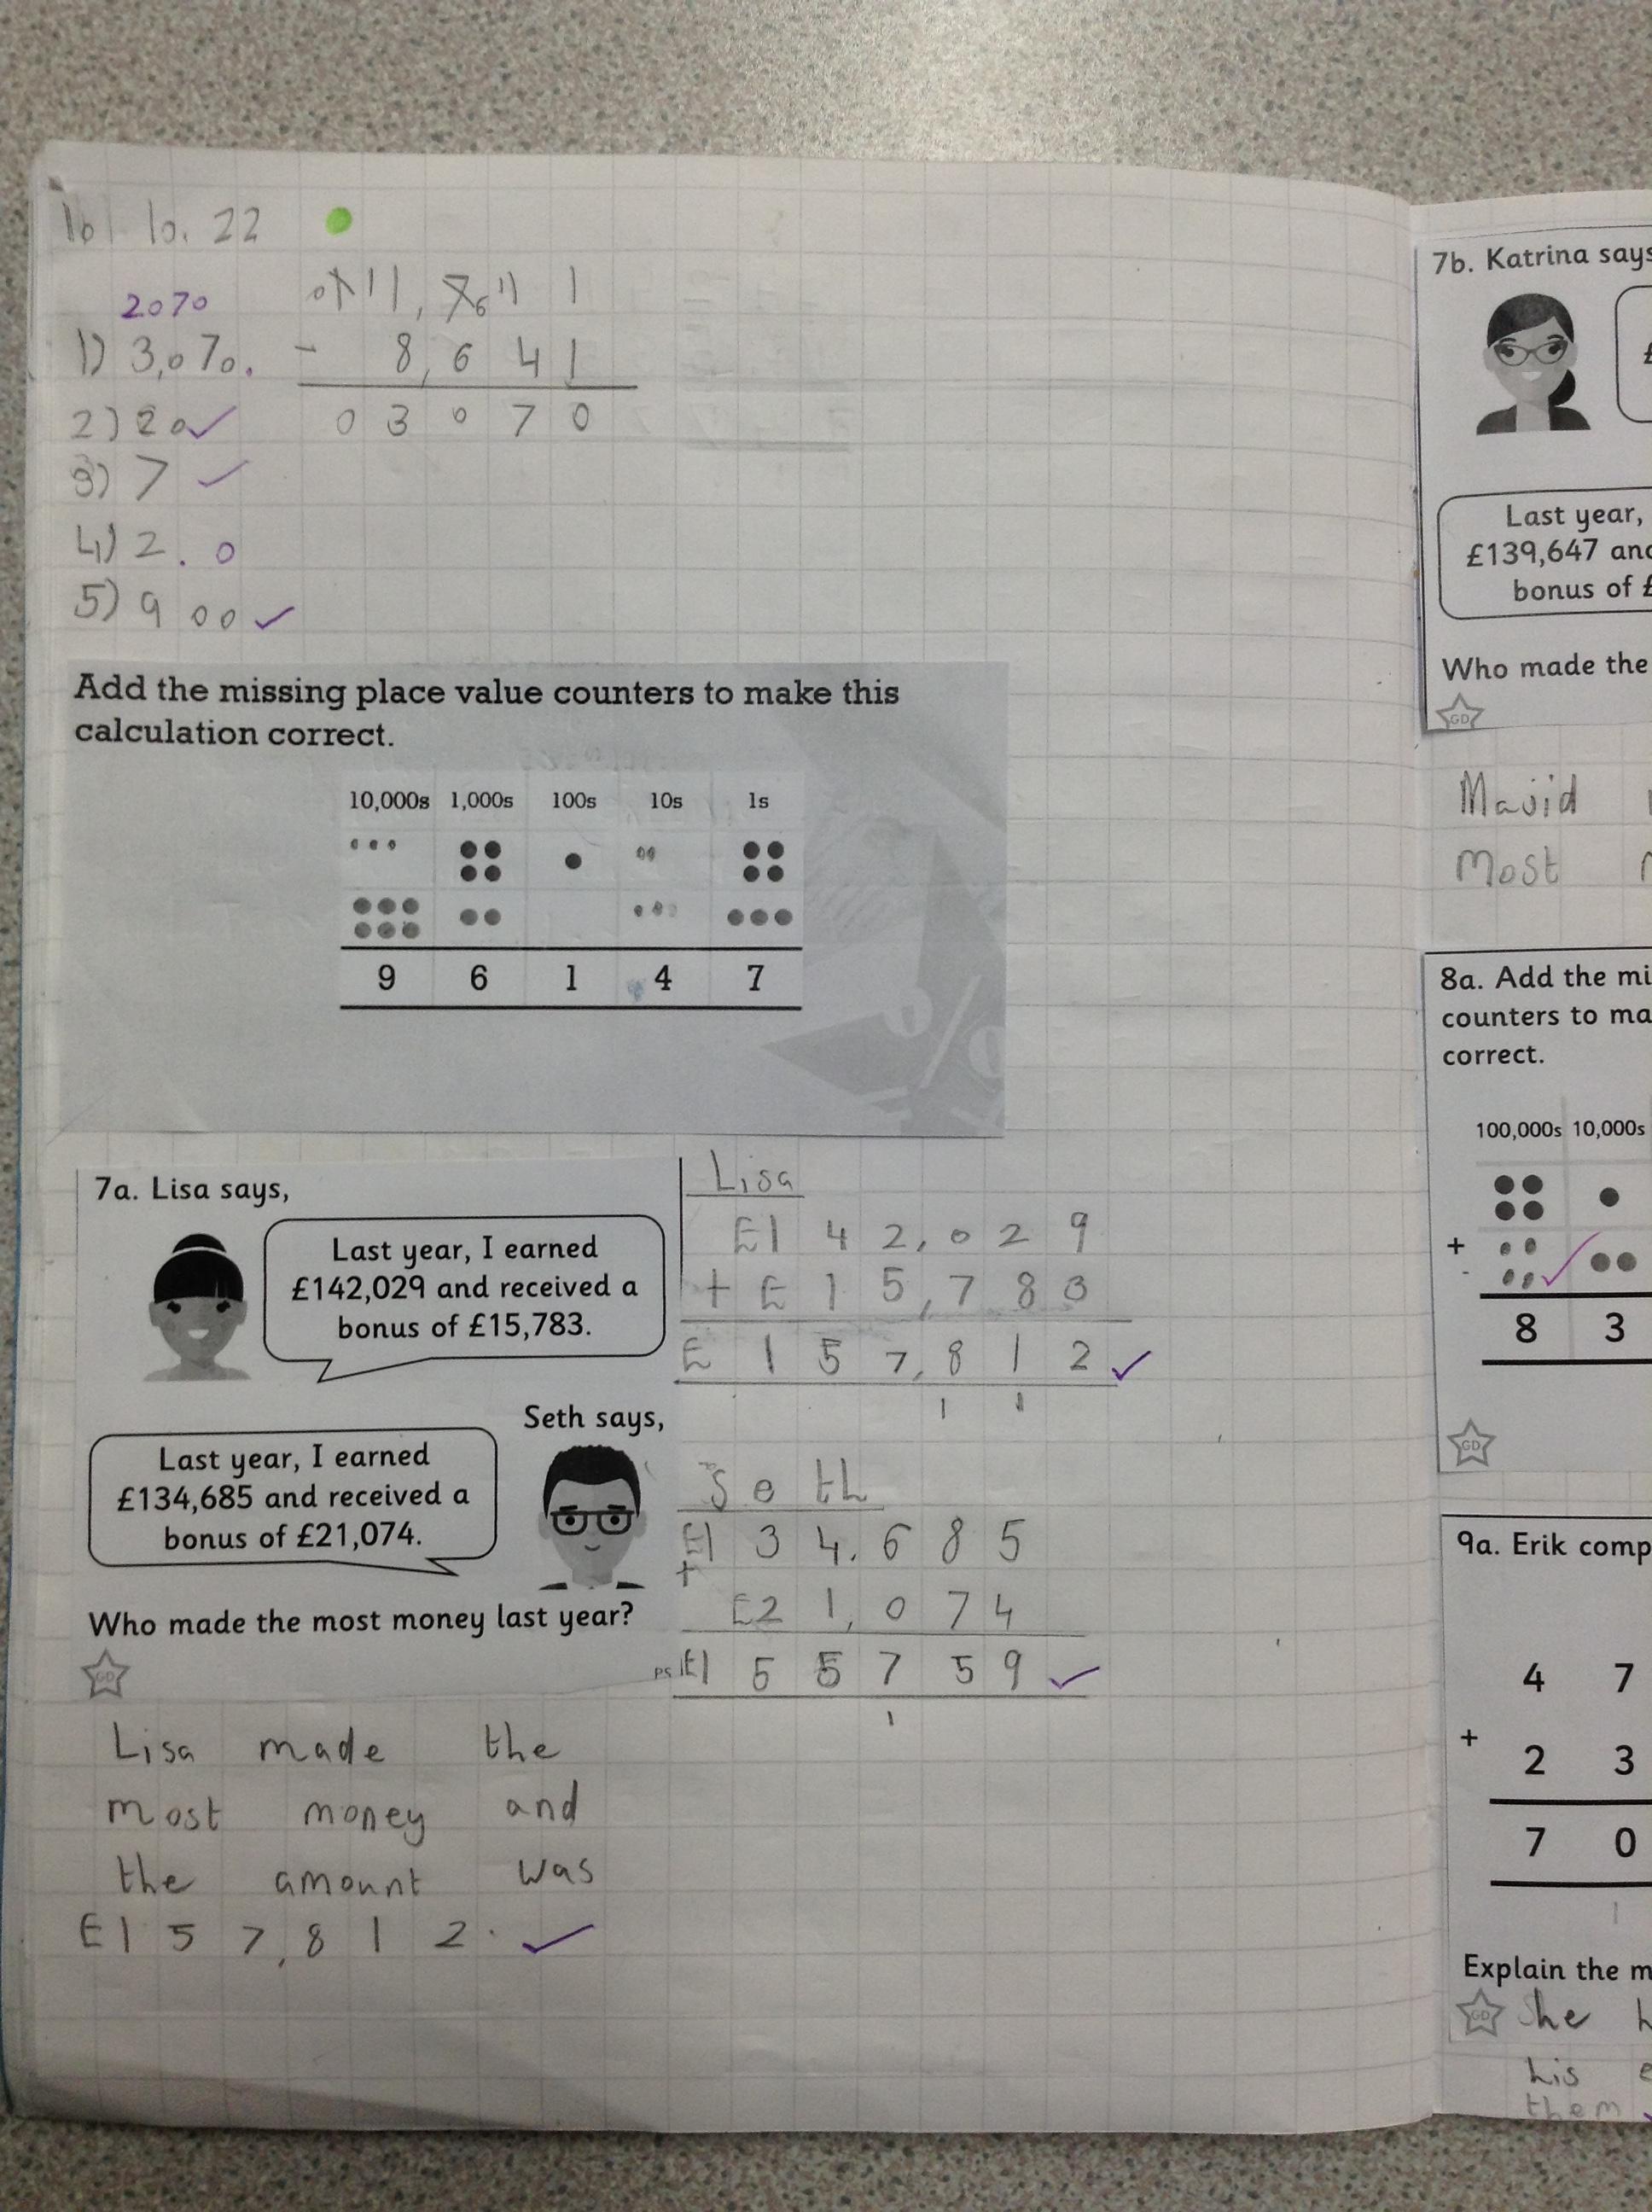 10.10.22
2070
0 1 11, 7 6 11 1
1) 3,070.
- 8,641
2) 20 ✓
0 3 0 7 0
3) 7 ✓
4) 2.0
5) 900 ✓
Add the missing place value counters to make this
calculation correct.
10,000s 1,000s 100s 10s 1s
9 6 1 4 7
7a. Lisa says,
Last year, I earned
£142,029 and received a
bonus of £15,783.
Seth says,
Last year, I earned
£134,685 and received a
bonus of £21,074.
Who made the most money last year?
GD
PS
Lisa
£142,029
+ £15,783
£157,812 ✓
1 1
Seth
£134,685
+
£21,074
£155759 ✓
1
Lisa made the
most money and
the amount was
£157,812. ✓
7b. Katrina says
£
Last year,
£139,647 and
bonus of £
Who made the
GD
Majid
most
8a. Add the mi
counters to ma
correct.
100,000s 10,000s
+
8 3
GD
9a. Erik comp
4 7
+
2 3
7 0
1
Explain the m
GD
She h
his e
them